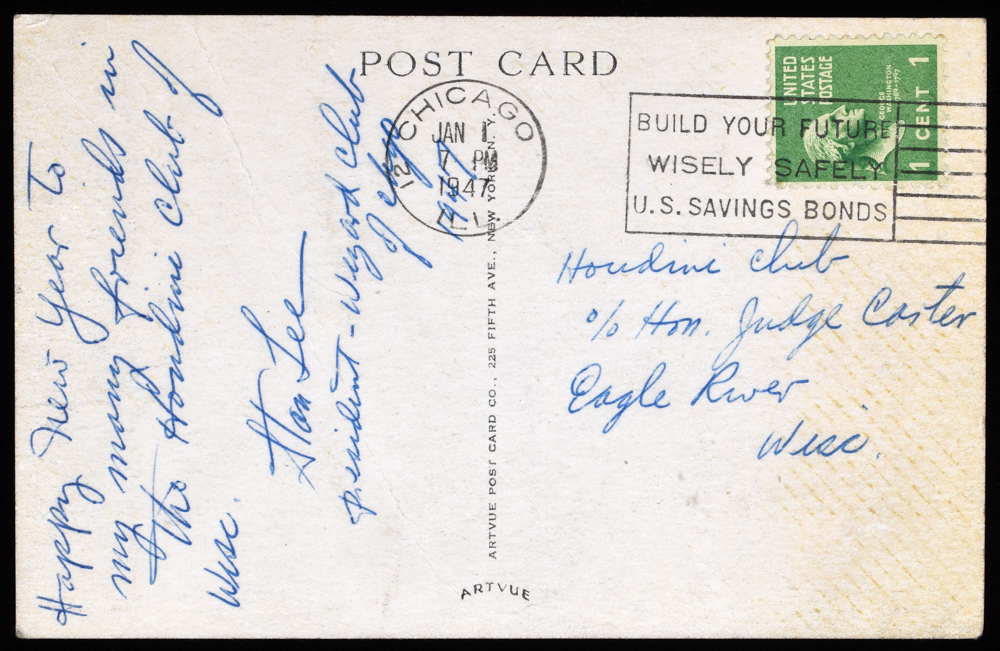 POST CARD
Happy New Year to
my many friends in
the Houdini Club of
Wisc.
Stan Lee
president - Wizard Club
of chgo
1947
CHICAGO
12
JAN 1
7 PM
1947
ILL.
BUILD YOUR FUTURE
WISELY SAFELY
U.S. SAVINGS BONDS
UNITED
STATES
POSTAGE
GEORGE
WASHINGTON
1789-1797
1 CENT 1
Houdini Club
c/o Hon. Judge Carter
Eagle River
Wisc.
ARTVUE POST CARD CO., 225 FIFTH AVE., NEW YORK, N. Y.
ARTVUE